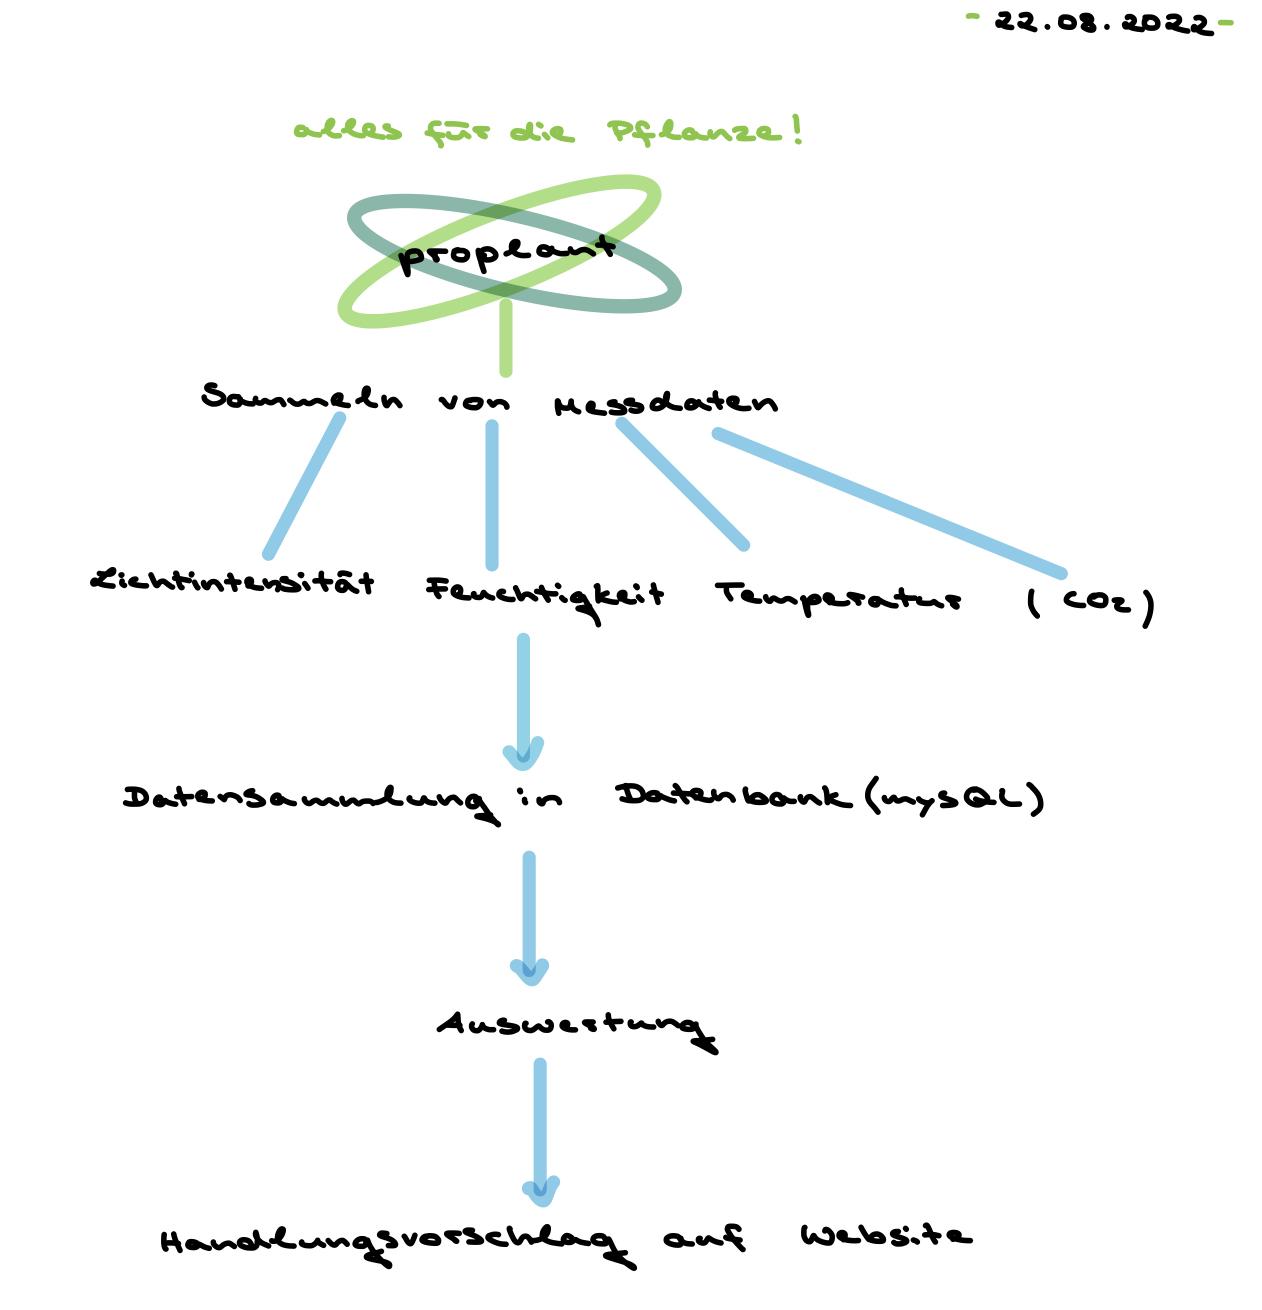 - 22.08.2022-
alles für die Pflanze!
proplant
Sammeln von Messdaten
Lichtintensität Feuchtigkeit Temperatur (CO2)
Datensammlung in Datenbank (mySQL)
Auswertung
Handlungsvorschlag auf Website